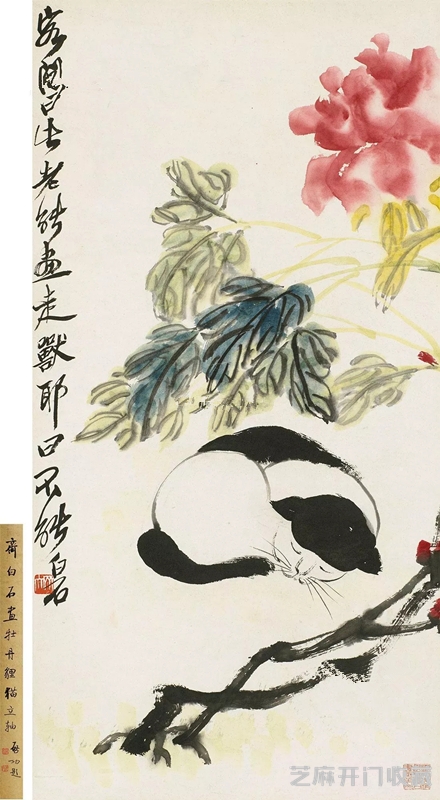 客問曰此老能畫走獸耶曰不能白石
齊白石畫牡丹貍貓立軸 啟功題
芝麻开门收藏